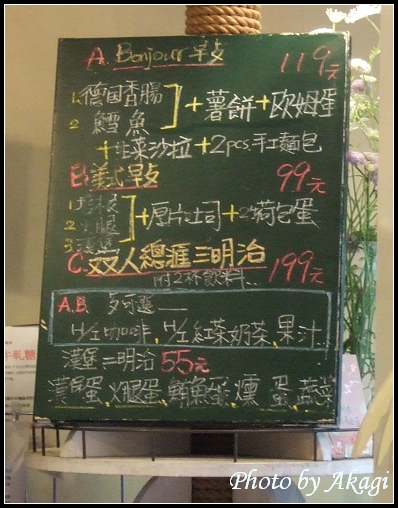 A. Bonjour 早餐 119元
1. 德国香腸
2. 鱈魚
+ 薯餅 + 欧姆蛋
+ 生菜沙拉 + 2pcs. 手工麵包
B. 美式早餐 99元
1 培根
2 火腿
3 漢堡
+ 厚片吐司 + 荷包蛋
C. 双人總滙三明治 199元
附2杯飲料...
A.B.
H/I 咖啡、H/I 紅茶奶茶、果汁...
漢堡 三明治 55元
漢堡蛋、火腿蛋、鮪魚 燻 蛋、蔬菜
Photo by Akagi